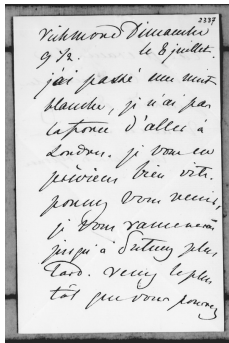 2337
richmond Dimanche
9 1/2. le 8 juillet.
j'ai passé une nuit
blanche, je n'ai pas
la force d'aller à
Londres. je vous en
préviens bien vite.
pouvez vous venir,
je vous ramenerai
jusqu'à Putney plus
tard. venez le plus
tôt que vous pourrez